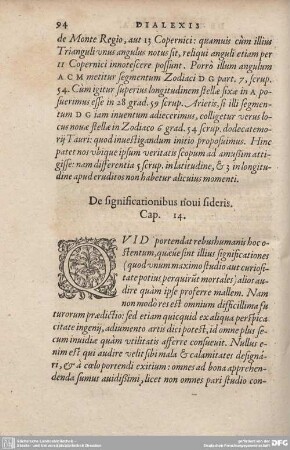 94 DIALEXIS
de Monte Regio, aut 13 Copernici: quamuis cùm illius
Trianguli vnus angulus notus sit, reliqui anguli etiam per
11 Copernici innotescere possunt. Porrò illum angulum
A C M metitur segmentum Zodiaci D G part. 7. scrup.
54. Cùm igitur superius longitudinem stellæ fixæ in A po-
suerimus esse in 28 grad. 59 scrup. Arietis, si illi segmen-
tum D G iam inuentum adiecerimus, colligetur verus lo-
cus nouæ stellæ in Zodiaco 6 grad. 54 scrup. dodecatemo-
rij Tauri: quod inuestigandum initio proposuimus. Hinc
patet nos vbique ipsum veritatis scopum ad amussim atti-
gisse: nam differentia 5 scrup. in latitudine, & 3 in longitu-
dine apud eruditos non habetur alicuius momenti.
De significationibus noui sideris.
Cap. 14.
QVID portendat rebus humanis hoc o-
stentum, quæue sint illius significationes
(quod vnum maximo studio aut curiosi-
tate potius perquirūt mortales) alios au-
dire quàm ipse proferre mallem. Nam
non modò res est omnium difficillima fu
turorum prædictio: sed etiam quicquid ex aliqua perspica-
citate ingenij, adiumento artis dici potest, id omne plus se-
cum inuidiæ quàm vtilitatis afferre consueuit. Nullus e-
nim est qui audire velit sibi mala & calamitates designa-
ri, & à cœlo portendi exitium: omnes ad bona apprehen-
denda sumus auidissimi, licet non omnes pari studio con-